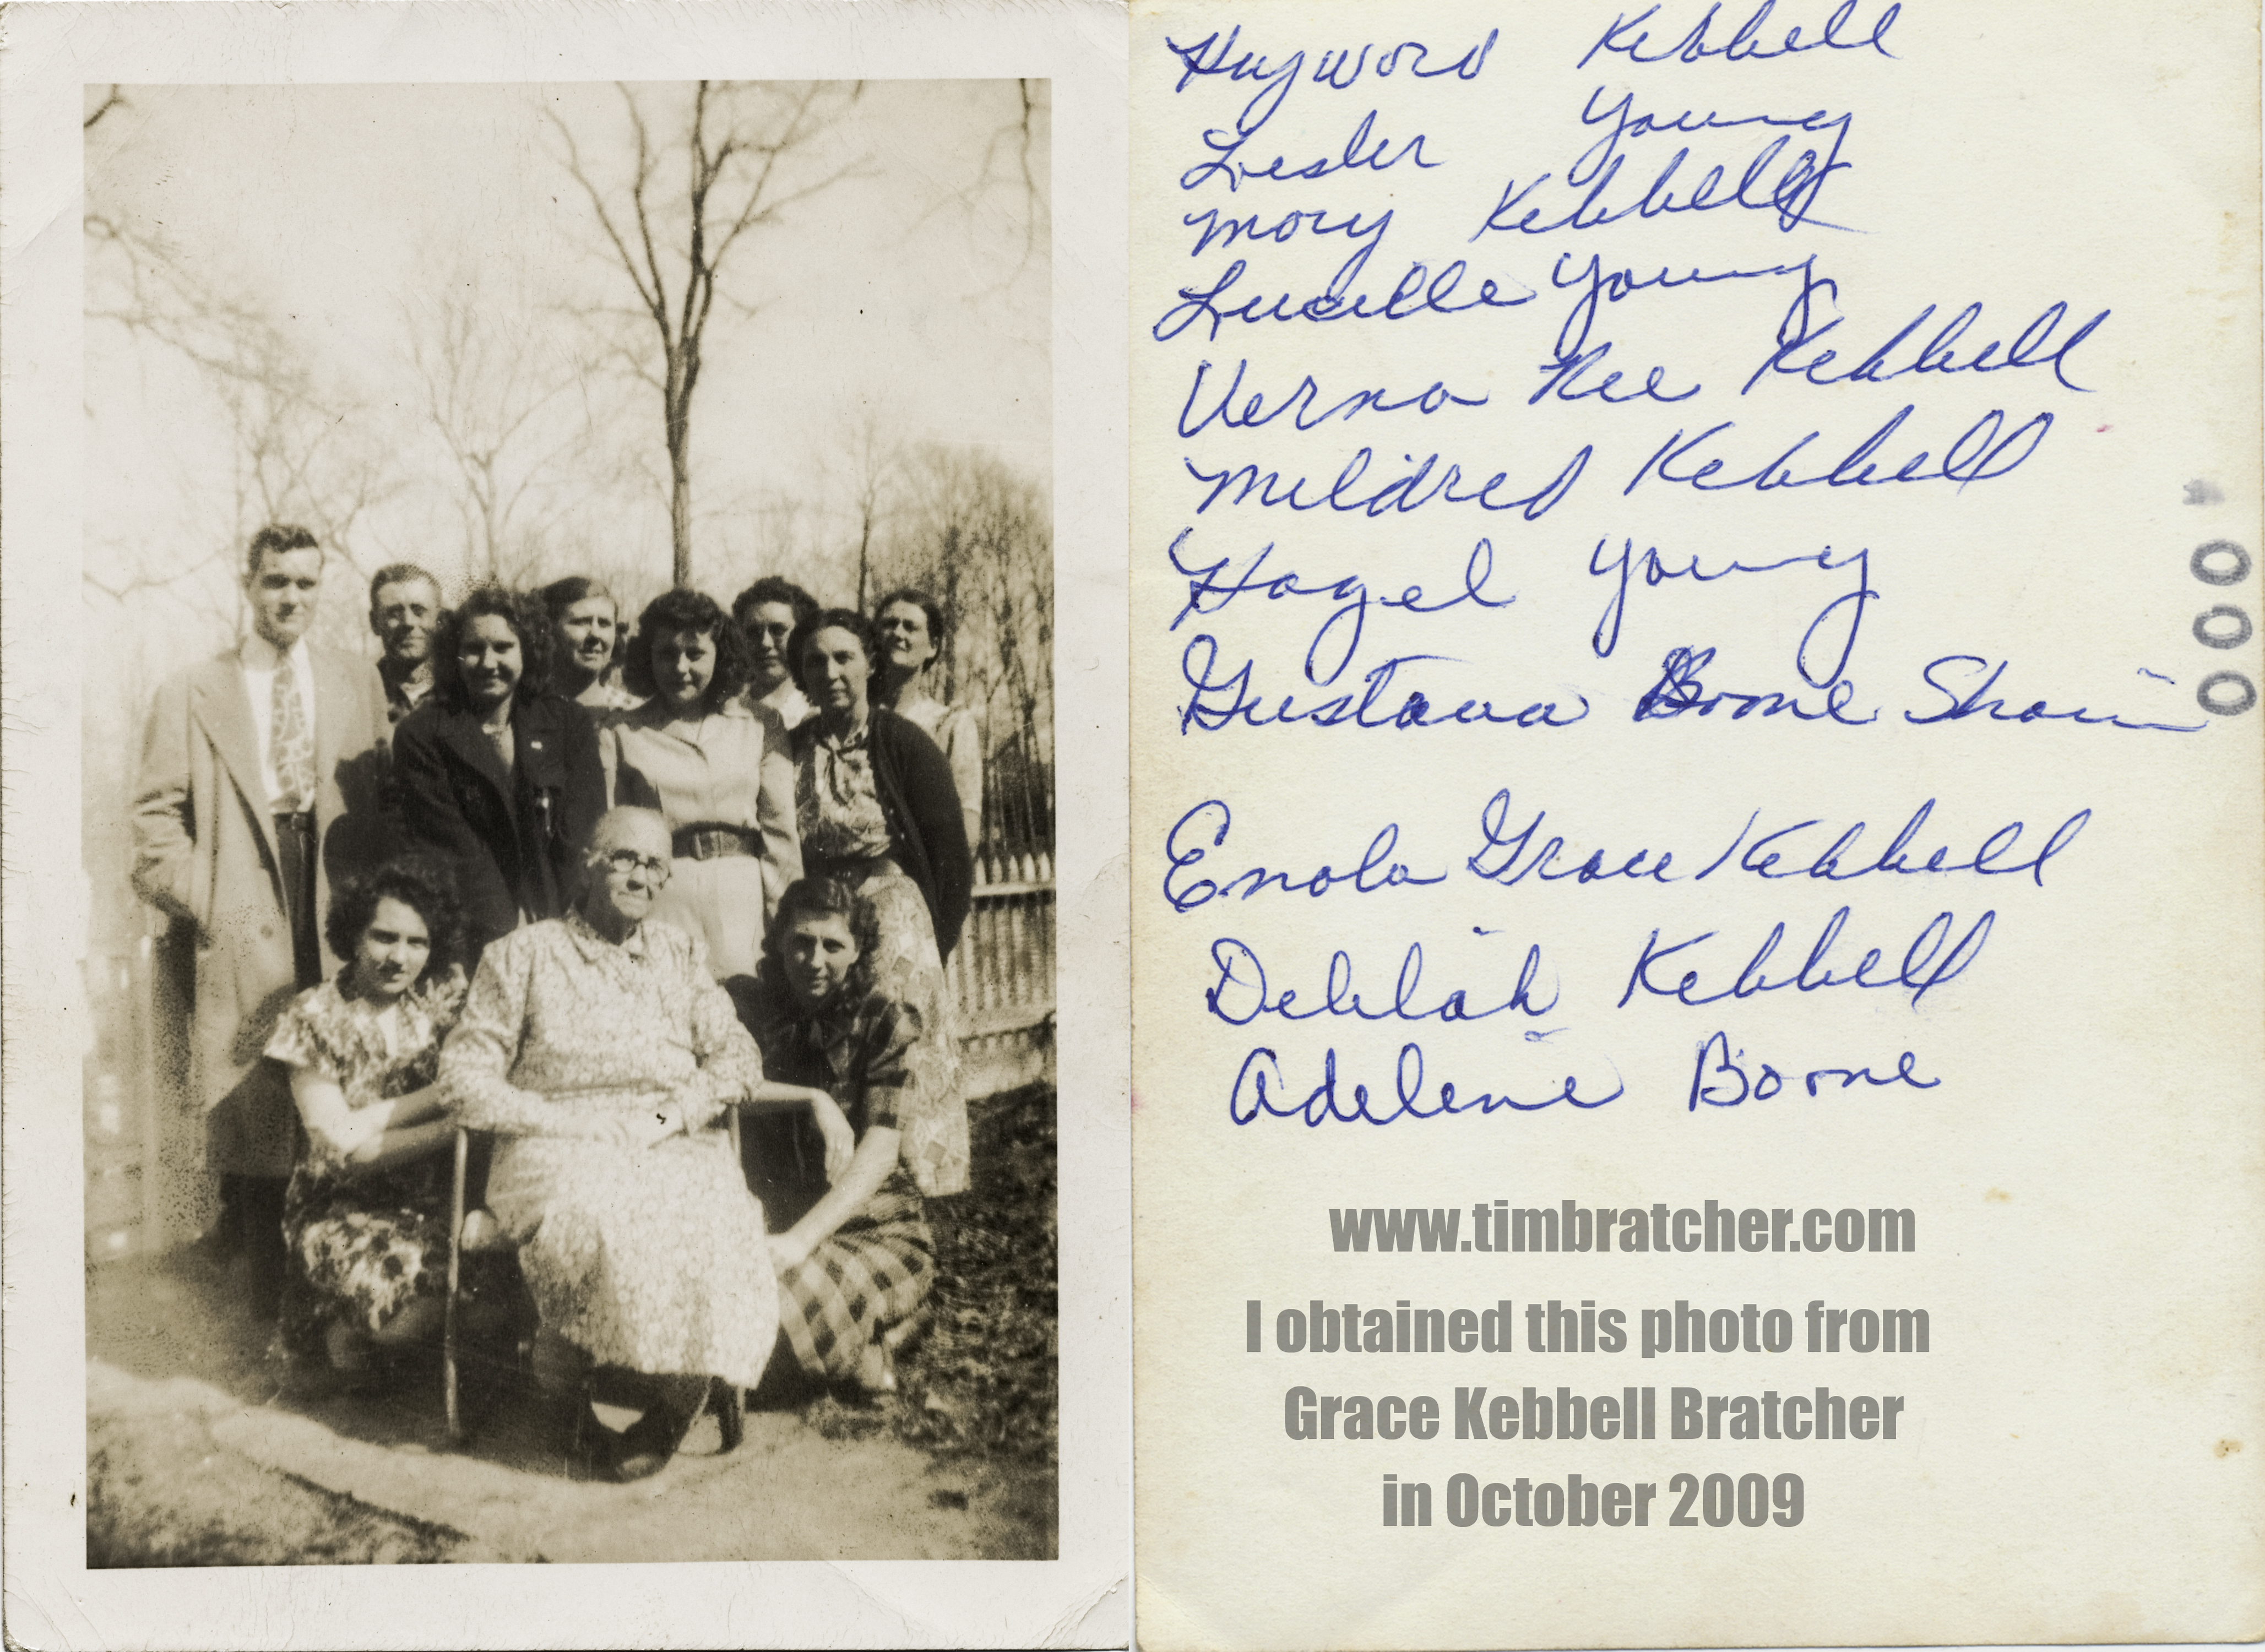 Haywood Kebbell
Lester Young
Mary Kebbell
Lucille Young
Verna Nee Kebbell
Mildred Kebbell
Hazel Young
Gustava Boone
Enola Grace Kebbell
Delilah Kebbell
Adelene Boone
000
www.timbratcher.com
I obtained this photo from
Grace Kebbell Bratcher
in October 2009